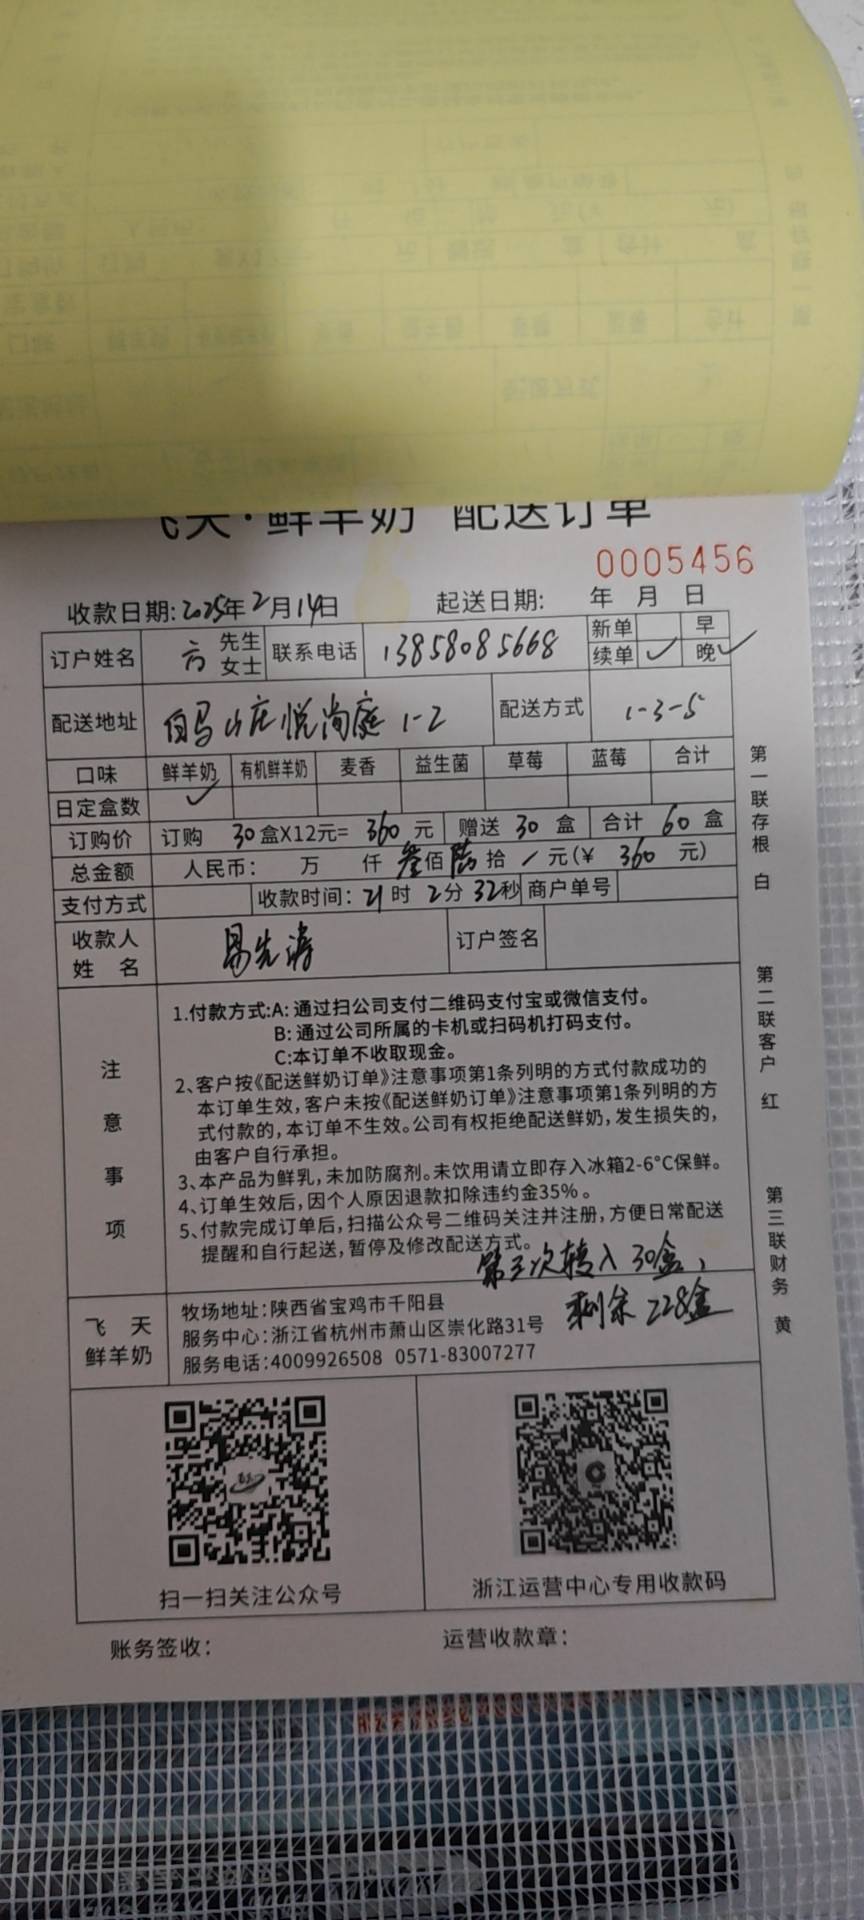 飞天·鲜羊奶 配送订单
0005456
收款日期: 2025年2月14日 起送日期: 年 月 日
订户姓名 方 先生 女士 联系电话 13858085668 新单 早
续单 ✓ 晚 ✓
配送地址 白马山庄悦尚庭 1-2 配送方式 1-3-5
口味 鲜羊奶 有机鲜羊奶 麦香 益生菌 草莓 蓝莓 合计
日定盒数 ✓
订购价 订购 30盒X12元= 360 元 赠送 30 盒 合计 60 盒
总金额 人民币: 万 仟 叁佰陆拾 / 元(¥ 360 元)
支付方式 收款时间: 21时 2分 32秒 商户单号
收款人姓名 易先涛 订户签名
注意事项
1.付款方式:A: 通过扫公司支付二维码支付宝或微信支付。
B: 通过公司所属的卡机或扫码机打码支付。
C:本订单不收取现金。
2、客户按《配送鲜奶订单》注意事项第1条列明的方式付款成功的
本订单生效,客户未按《配送鲜奶订单》注意事项第1条列明的方
式付款的,本订单不生效。公司有权拒绝配送鲜奶,发生损失的,
由客户自行承担。
3、本产品为鲜乳,未加防腐剂。未饮用请立即存入冰箱2-6°C保鲜。
4、订单生效后,因个人原因退款扣除违约金35%。
5、付款完成订单后,扫描公众号二维码关注并注册,方便日常配送
提醒和自行起送,暂停及修改配送方式。
第三次转入 30盒,
剩余 228盒
飞天
鲜羊奶
牧场地址:陕西省宝鸡市千阳县
服务中心:浙江省杭州市萧山区崇化路31号
服务电话:4009926508 0571-83007277
扫一扫关注公众号
浙江运营中心专用收款码
账务签收:
运营收款章:
第一联存根 白
第二联客户 红
第三联财务 黄